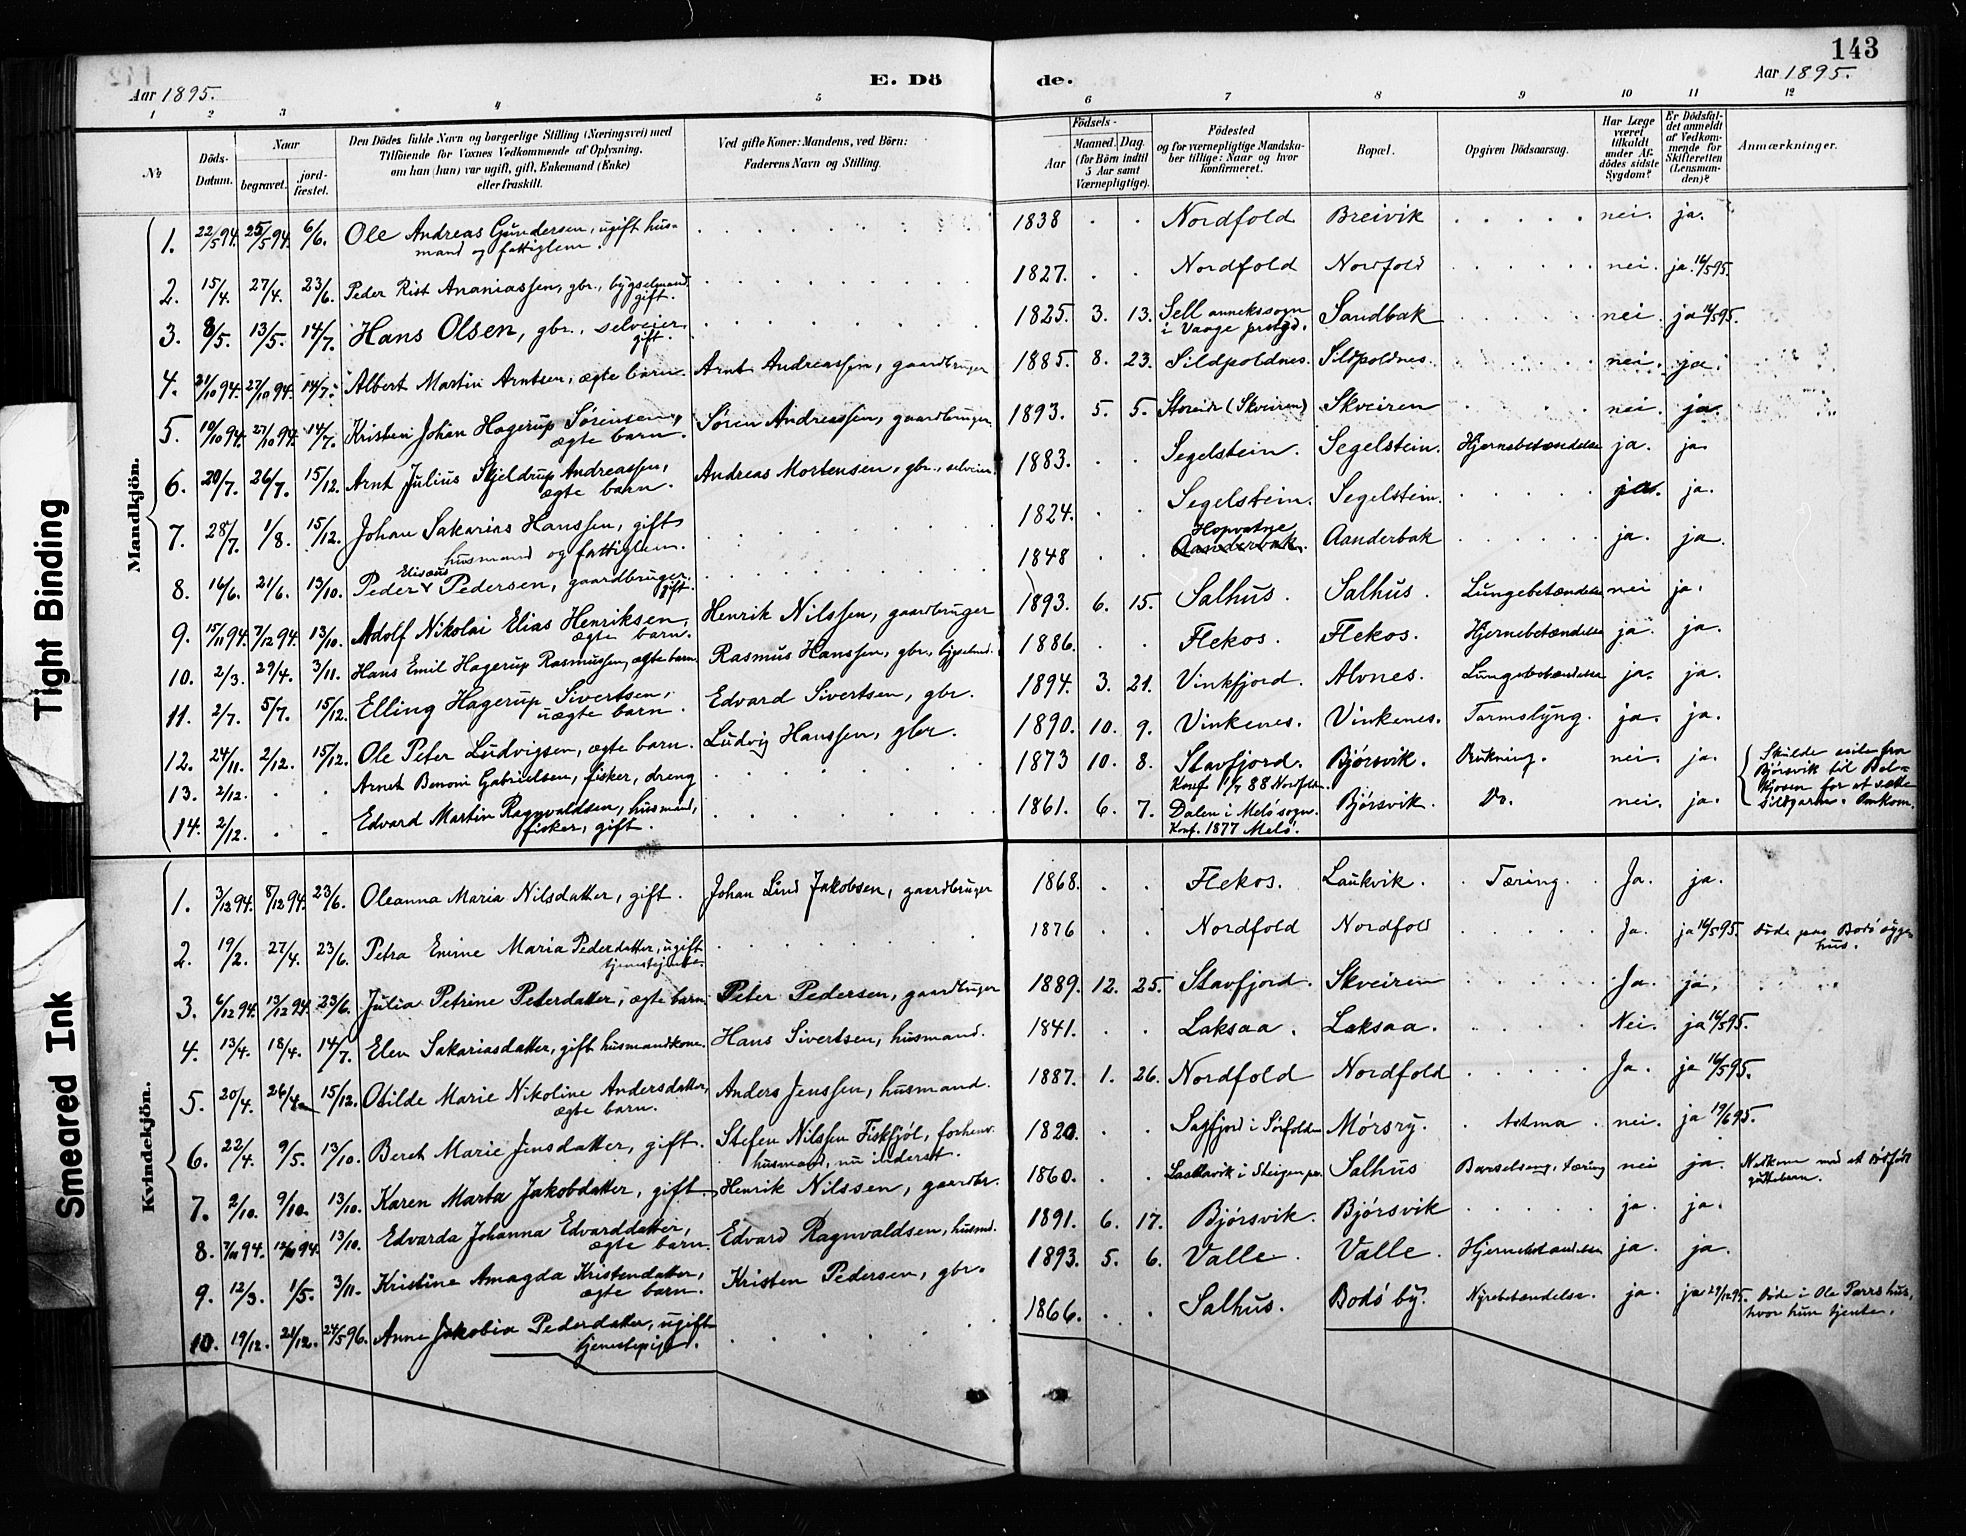 143
Aar 1895.
E. Dö
de.
Aar 1895.
1 2 3 4 5 6 7 8 9 10 11 12
№
Döds-Datum.
Naar
begravet.
jordfæstet.
Den Dödes fulde Navn og borgerlige Stilling (Næringsvei) med
Tilföiende for Voxnes Vedkommende af Oplysning,
om han (hun) var ugift, gift, Enkemand (Enke)
eller fraskilt.
Ved gifte Koner: Mandens, ved Börn:
Faderens Navn og Stilling.
Födsels-
Aar
Maaned. Dag.
(for Börn indtil
5 Aar samt
Værnepligtige).
Födested
og for værnepligtige Mandska-
ber tillige: Naar og hvor
konfirmeret.
Bopæl.
Opgiven Dödsaarsag.
Har Læge
været
tilkaldt
under Af-
dödes sidste
Sygdom?
Er Dödsfal-
det anmeldt
af Vedkom-
mende for
Skifteretten
(Lensman-
den)?
Anmærkninger.
Mandkjön.
1. 22/5 94. 25/5 94. 6/6. Ole Andreas Gundersen, ugift hus-
mand og fattiglem. 1838 Nordfold Breivik nei. ja.
2. 15/4. 27/4. 23/6. Peder Rist Ananiassen, gbr., bygselmand
gift. 1827. Nordfold Nordfold nei. ja. 16/5 95.
3. 8/5. 13/5. 14/7. Hans Olsen, gbr., selveier
gift. 1825. 3. 13. Sell annekssogn
i Vaage prstgd. Sandbak nei ja 16/5 95.
4. 21/10 94. 27/10 94. 14/7. Albert Martin Arntsen, ægte barn. Arnt Andreassen, gaardbruger 1885. 8. 23. Sildpoldnes. Sildpoldnes. nei. ja.
5. 19/10 94. 27/10 94. 14/7. Kristen Johan Hagerup Sørensen,
ægte barn. Søren Andreassen, gaardbruger 1893. 5. 5. (Skveiren) Skveiren nei. ja.
6. 20/7. 26/7. 15/12. Arnt Julius Skjeldrup Andreassen,
ægte barn. Andreas Mortensen, gbr., selveier. 1883. Segelstein. Segelstein. Hjernebetændelse ja. ja.
7. 28/7. 1/8. 15/12. Johan Sakarias Hanssen, gift
husmand og fattiglem. 1824. Segelstein. Segelstein. ja. ja.
8. 16/6. 21/6. 13/10. Peder Elisæus Pedersen, gaardbruger.
gift. 1848 Hopvatne
Aanderbak. Aanderbak ja. ja.
9. 15/11 94. 7/12 94. 13/10. Adolf Nikolai Elias Henriksen,
ægte barn. Henrik Nilssen, gaardbruger 1893. 6. 15. Salhus. Salhus. Lungebetændelse nei ja.
10. 2/3. 29/4. 3/11. Hans Emil Hagerup Rasmussen, ægte barn. Rasmus Hanssen, gbr., bygselmd. 1886. Flekos. Flekos. Hjernebetændelse ja. ja.
11. 2/7. 5/7. 15/12. Elling Hagerup Sivertsen,
uægte barn. Edvard Sivertsen, gbr. 1894. 3. 21. Vinkfjord. Alvnes. Lungebetændelse ja. ja.
12. 24/11. 2/12. 15/12. Ole Peter Ludvigsen, ægte barn. Ludvig Hanssen, gbr. 1890. 10. 9. Vinkenes. Vinkenes. Tarmslyng. ja. ja.
13. 2/12. Arnet Benoni Gabrielsen, fisker, dreng 1873 10. 8. Stavfjord.
Konf 1/7 88 Nordfolden Bjørsvik. Drukning. nei. ja. Skulde seile fra
Bjørsvik til
for at sætte
Sildgarn. Omkom.
14. 2/12. Edvard Martin Ragnvaldsen, husmand,
fisker, gift. 1861. 6. 7. Dalen i Melö sogn.
Konf. 1877 Melö. Bjørsvik. Do. nei. ja.
Kvindekjön.
1. 3/12 94. 8/12 94. 23/6. Oleanna Maria Nilsdatter, gift. Johan Lind Jakobsen, gaardbruger 1868. Flekos. Laukvik. Tæring. Ja. ja.
2. 19/2. 27/4. 23/6. Petra Emine Maria Pederdatter, ugift
tjenestejente. 1876 Nordfold Nordfold Ja. ja 16/5 95. Døde paa Bodø syge-
hus.
3. 6/12 94. 13/12 94. 23/6. Julia Petrine Peterdatter, ægte barn. Peter Pedersen, gaardbruger 1889. 12. 25. Stavfjord. Skveiren Ja. ja.
4. 13/4. 18/4. 14/7. Elen Sakariasdatter, gift husmandkone. Hans Sivertsen, husmand. 1841. Laksaa. Laksaa. Nei. ja 16/5 95.
5. 20/4. 26/4. 15/12. Otilde Marie Nikoline Andersdatter,
ægte barn. Anders Jenssen, husmand. 1887. 1. 26. Nordfold Nordfold Ja. ja 16/5 95.
6. 22/4. 9/5. 13/10. Beret Marie Jensdatter, gift. Stefen Nilssen Fiskfjøl, forhenv.
husmand, nu inderst. 1820. Sagfjord i Sörfolden Mörsry. Astma nei. ja 19/6 95.
7. 2/10. 9/10. 13/10. Karen Marta Jakobdatter, gift. Henrik Nilssen, gaardbr. 1860. i Steigen Salhus Barselseng, tæring nei ja. Nedkom med et dødfødt
guttebarn.
8. 94. 94. 13/10. Edvarda Johanna Edvarddatter,
ægte barn. Edvard Ragnvaldsen, husmd. 1891. 6. 17. Bjørsvik. Bjørsvik ja. ja.
9. 12/3. 1/5. 3/11. Kristine Amagda Kristendatter,
ægte barn. Kristen Pedersen, gbr. 1893. 5. 6. Valle. Valle. Hjernebetændelse ja. ja.
10. 19/12. 21/12. 24/5 96. Anne Jakobia Pederdatter, ugift
tjenestepige. 1866. Salhus. Bodö by. Nyrebetændelse. ja. ja 27/12 95. Døde i Ole hus,
hvor hun tjente.
Tight Binding
Smeared Ink